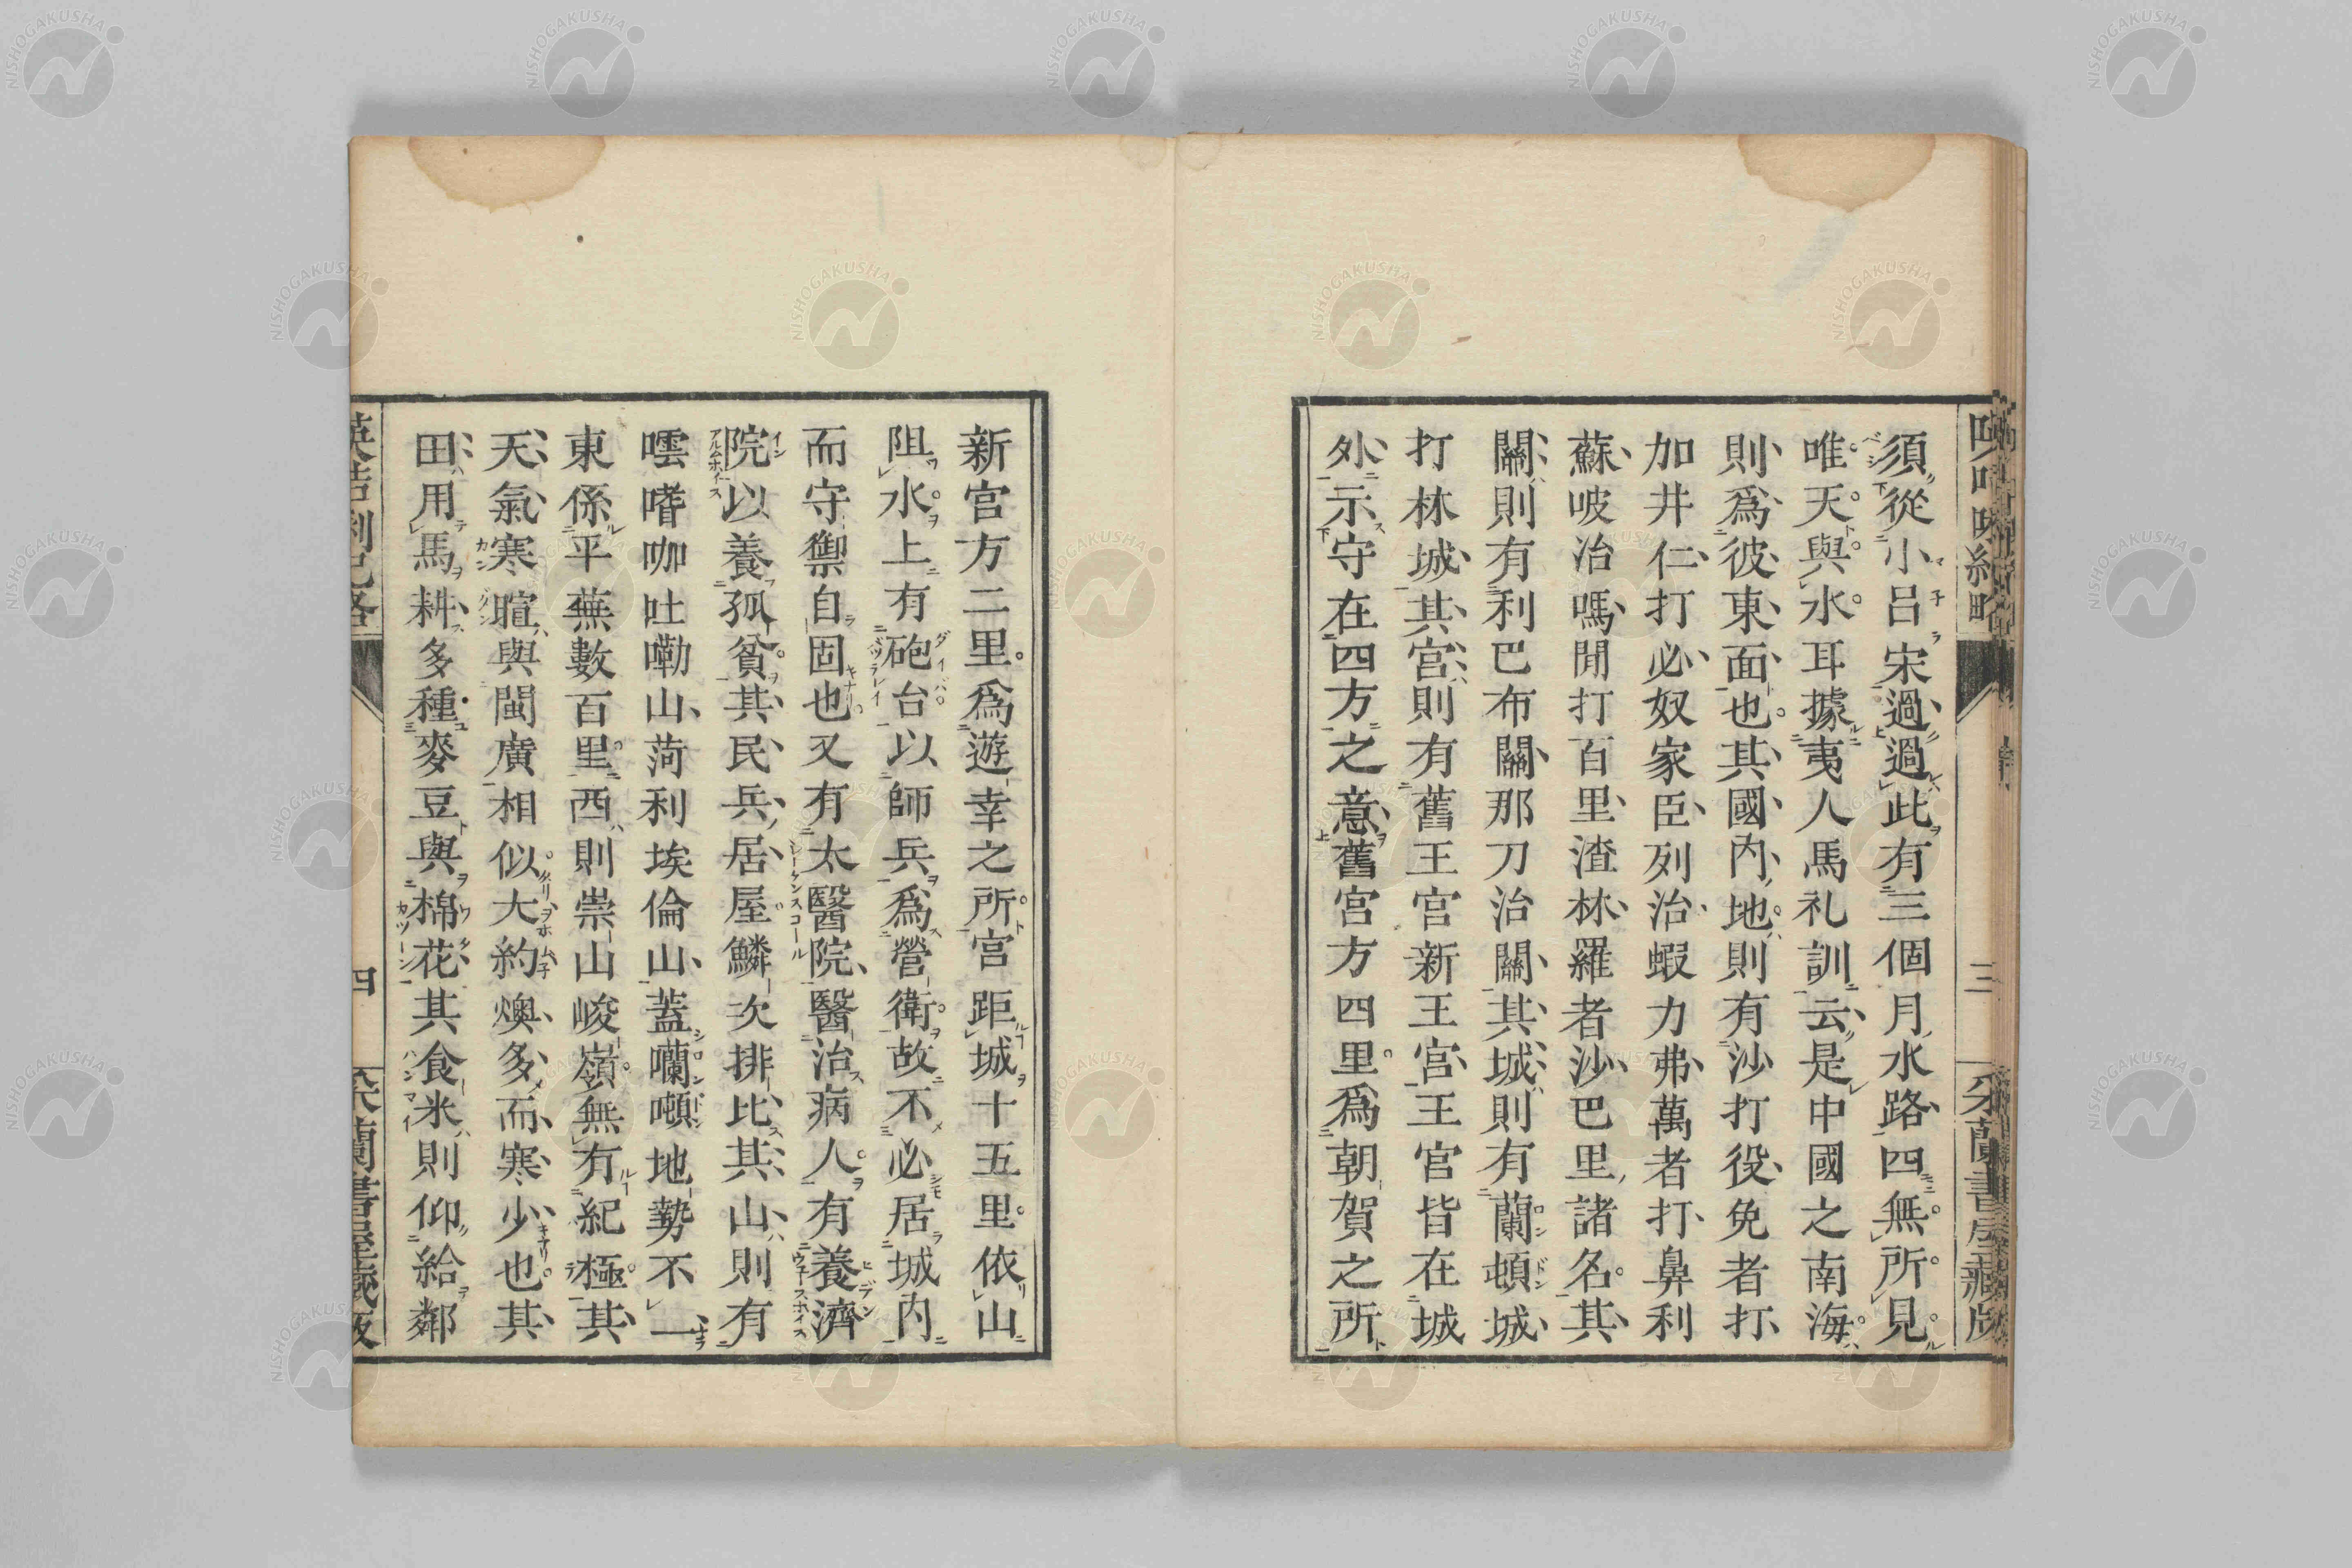 須從小呂宋過過此有三個月水路四無所見
唯天與水耳據夷人馬礼訓云是中國之南海
則爲彼東面也其國內地則有沙打役免者打
加井仁打必奴家臣列治蝦力弗萬者打鼻利
蘇吱治嗎閒打百里渣林羅者沙巴里諸名其
關則有利巴布關那刀治關其城則有蘭頓城
打林城其宮則有舊王宮新王宮王宮皆在城
外示守在四方之意舊宮方四里爲朝賀之所
三
新宮方二里爲遊幸之所宮距城十五里依山
阻水上有砲台以師兵爲營衛故不必居城內
而守禦自固也又有太醫院醫治病人有養濟
院以養孤貧其民兵居屋鱗次排比其山則有
嚐咖吐嘞山菏利埃倫山蓋囒噸地勢不一
東係平蕪數百里西則崇山峻嶺無有紀極其
天氣寒暄與閩廣相似大約燠多而寒少也其
田用馬耕多種麥豆與棉花其食米則仰給鄰
四
NISHOGAKUSHA